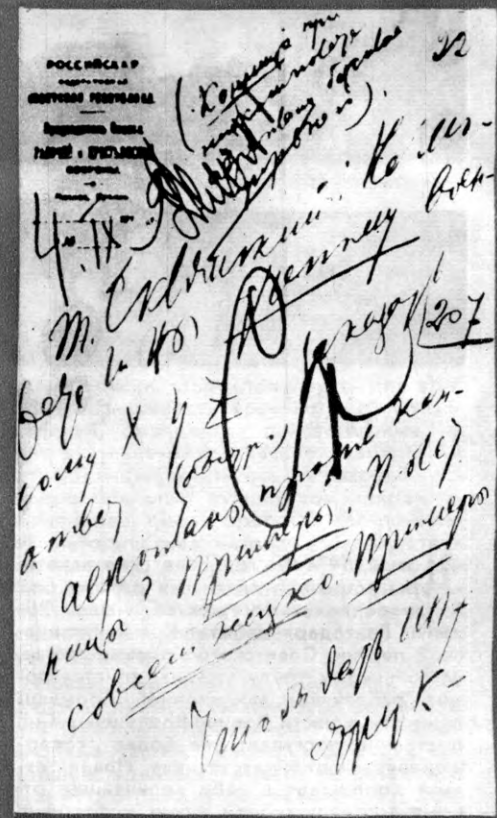 22
РОССИЙСКАЯ
ФЕДЕРАТИВНАЯ
СОВЕТСКАЯ РЕСПУБЛИКА.
Председатель Совета
РАБОЧЕЙ и КРЕСТЬЯНСКОЙ
ОБОРОНЫ.
Москва, Кремль.
(Конница при
низком полете
бессильна
против).
4.IX
т. Склянский! Не мо-
жете ли Вы ученому воен-
ному X Y Z заказать
207
ответ (быстро):
аэропланы против кон-
ницы? Примеры. Полет
совсем низко. Примеры.
Чтобы дать инст
рук